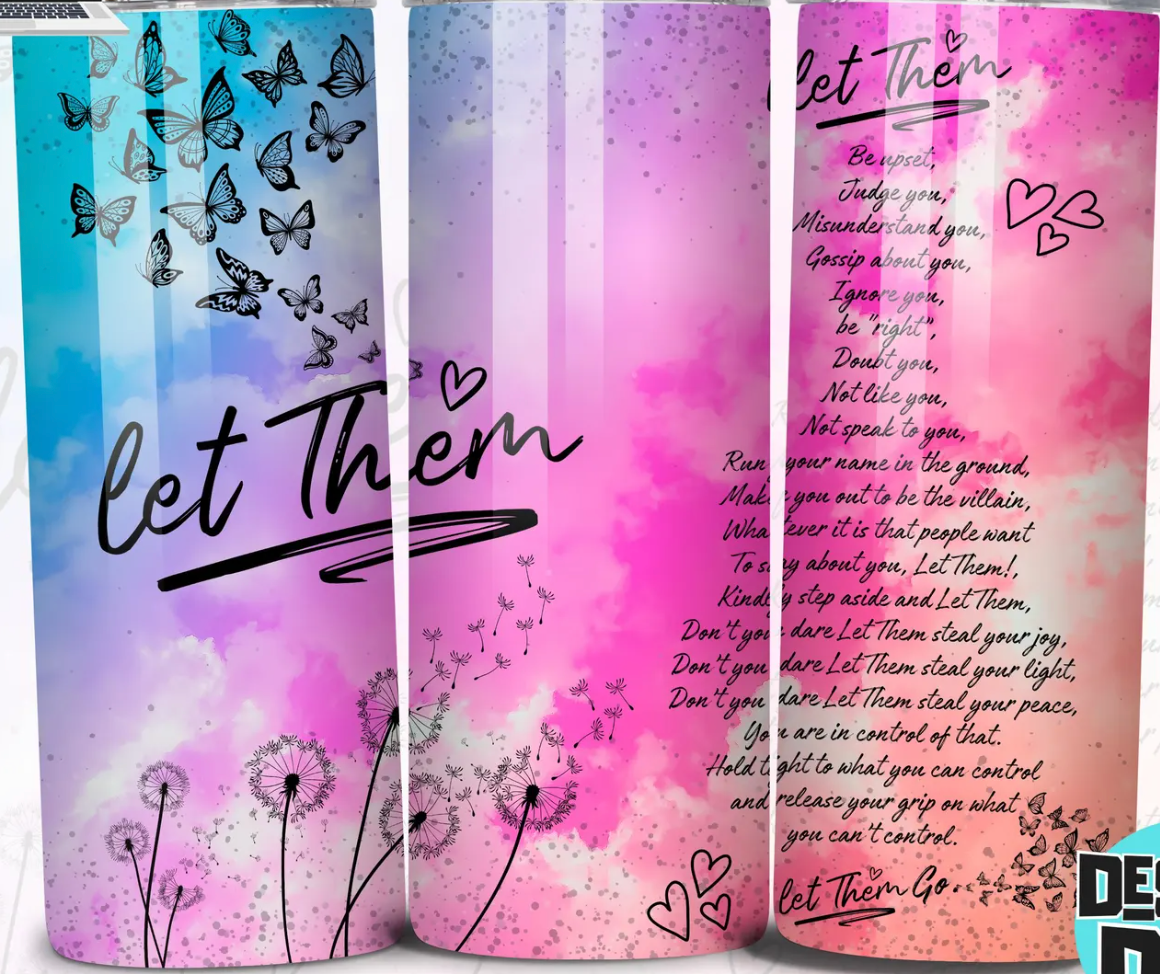 let Them
let Them
Be upset,
Judge you,
Misunderstand you,
Gossip about you,
Ignore you,
be "right",
Doubt you,
Not like you,
Not speak to you,
Run your name in the ground,
Make you out to be the villain,
Whatever it is that people want
To say about you, Let Them!,
Kindly step aside and Let Them,
Don't you dare Let Them steal your joy,
Don't you dare Let Them steal your light,
Don't you dare Let Them steal your peace,
You are in control of that.
Hold tight to what you can control
and release your grip on what
you can't control.
let Them Go...